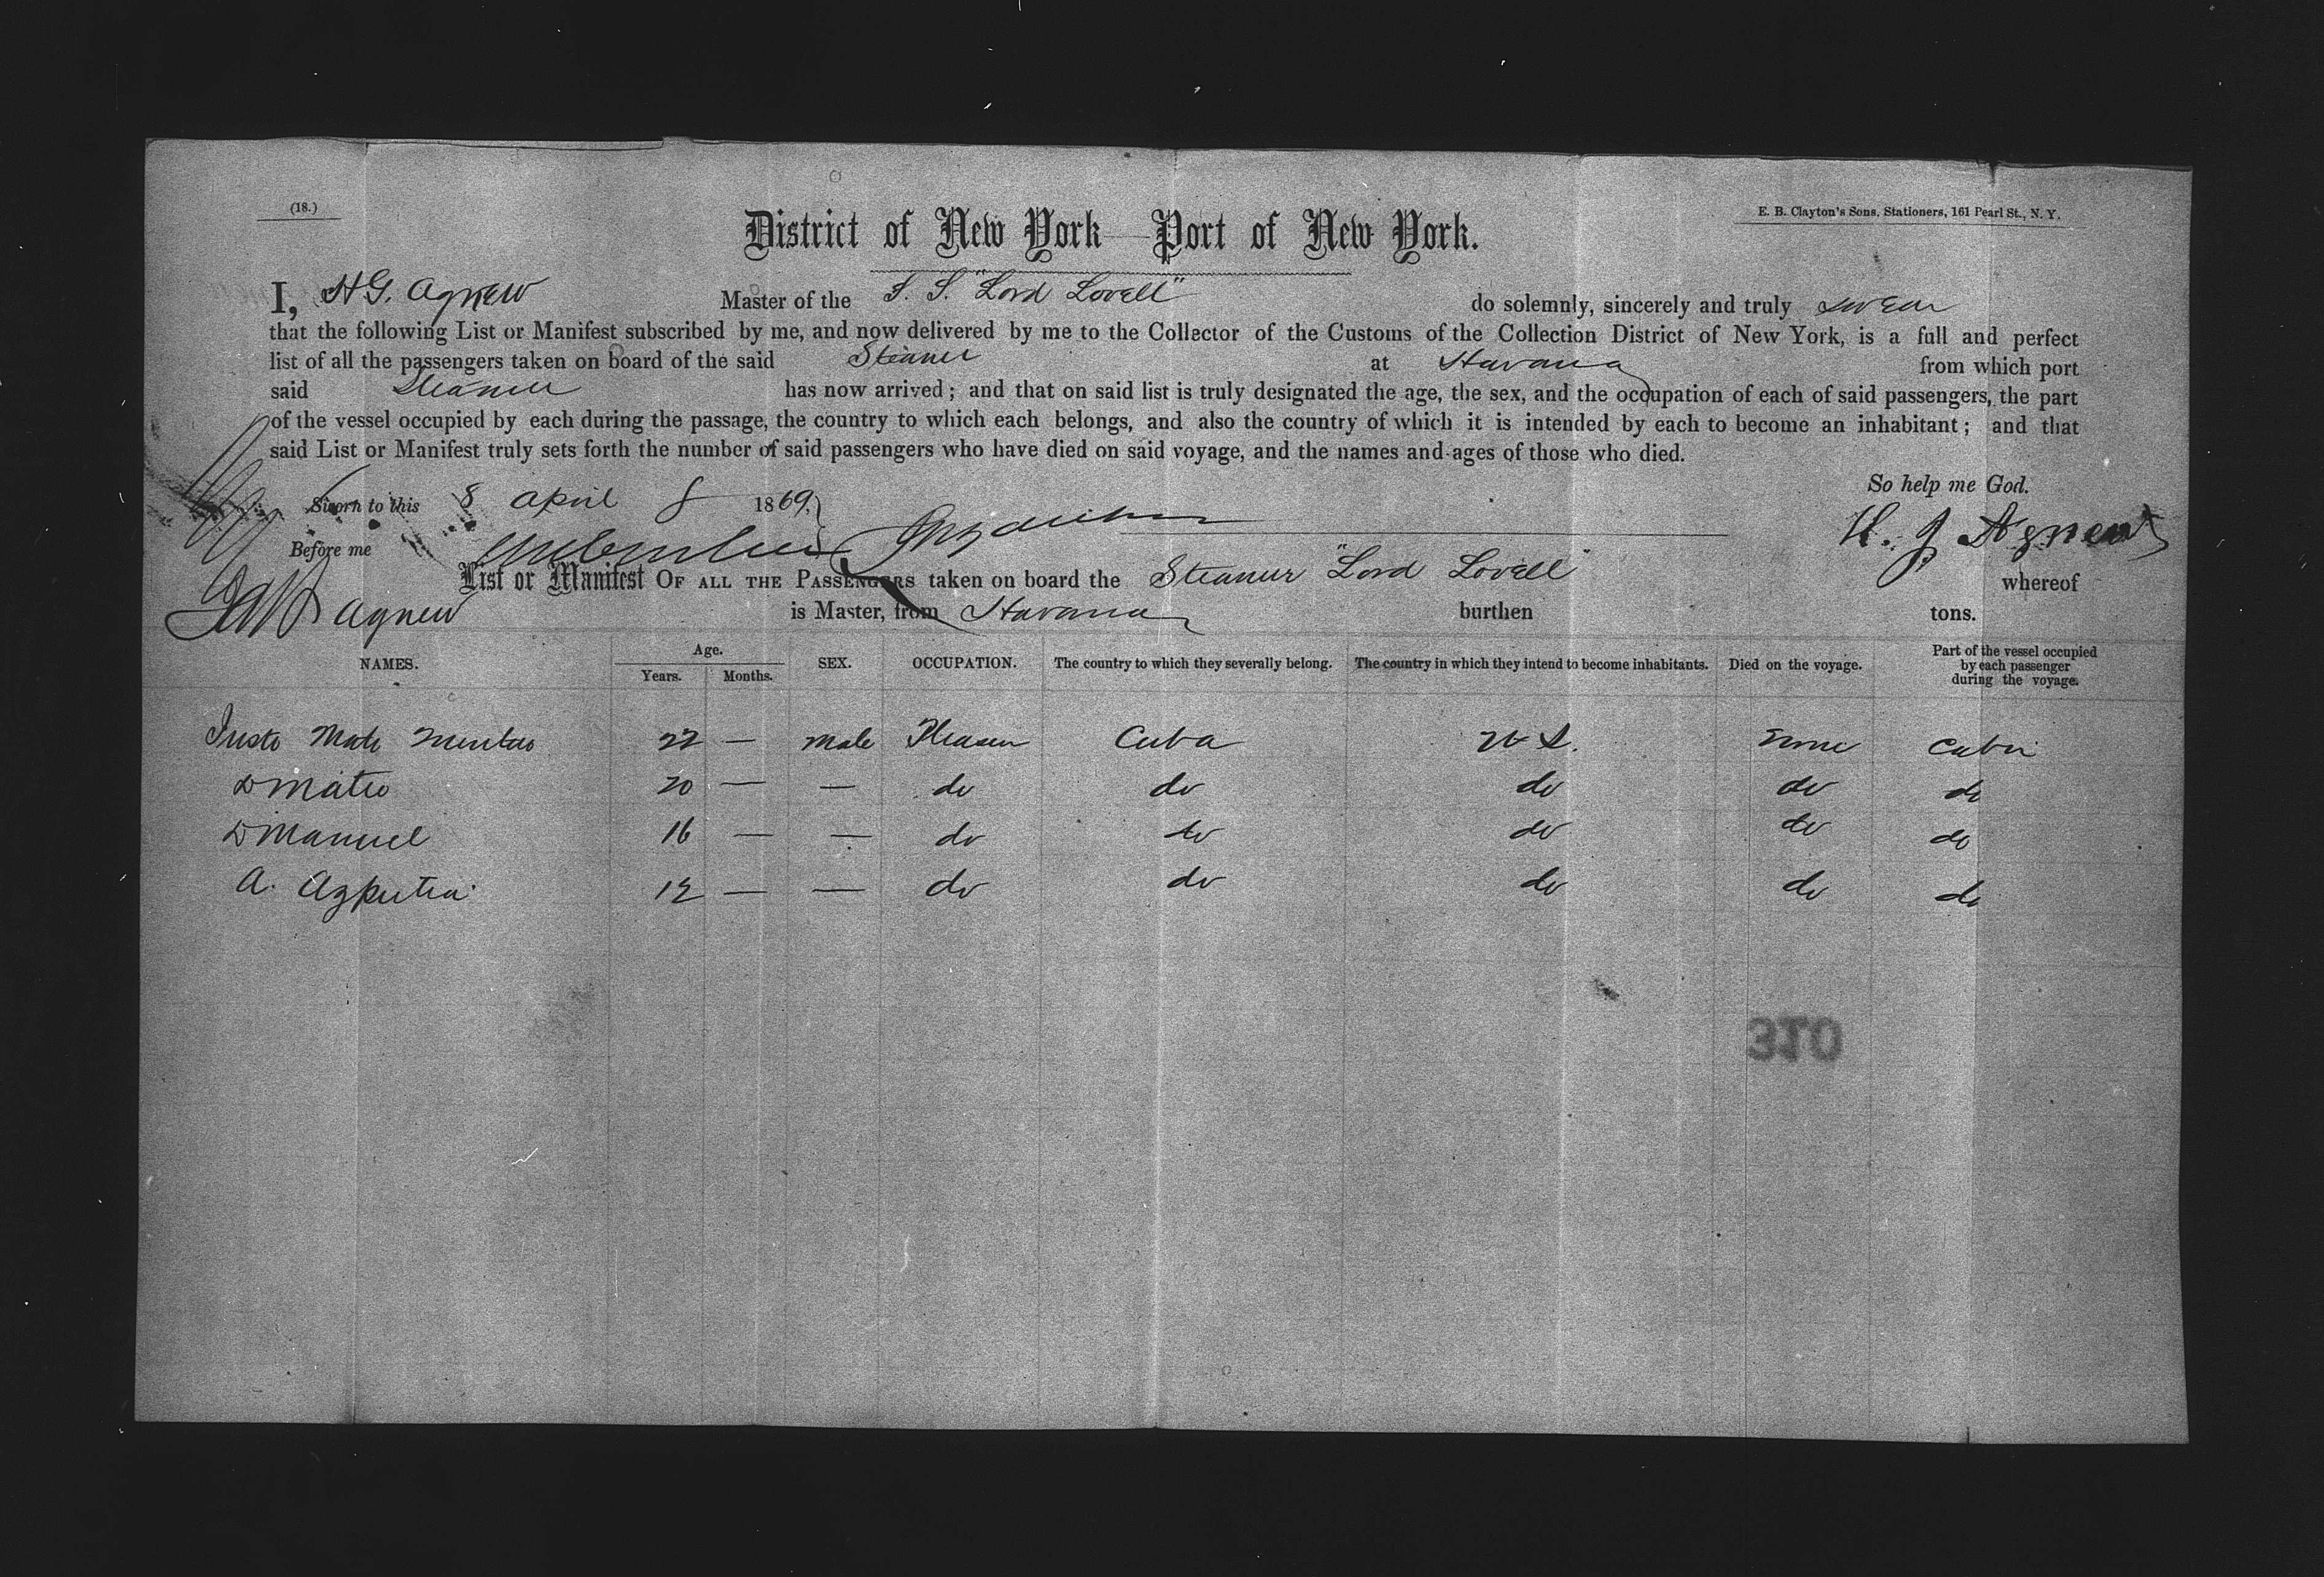 (18.)
E. B. Clayton's Sons, Stationers, 161 Pearl St., N. Y.
District of New York—Port of New York.
I, H G. Agnew Master of the S. S. "Lord Lovell" do solemnly, sincerely and truly swear
that the following List or Manifest subscribed by me, and now delivered by me to the Collector of the Customs of the Collection District of New York, is a full and perfect
list of all the passengers taken on board of the said Steamer at Havana from which port
said Steamer has now arrived; and that on said list is truly designated the age, the sex, and the occupation of each of said passengers, the part
of the vessel occupied by each during the passage, the country to which each belongs, and also the country of which it is intended by each to become an inhabitant; and that
said List or Manifest truly sets forth the number of said passengers who have died on said voyage, and the names and ages of those who died.
So help me God.
Sworn to this 8 April 1869.
Before me
H. G Agnew
List or Manifest OF ALL THE PASSENGERS taken on board the Steamer "Lord Lovell" whereof
Agnew is Master, from Havana burthen tons.
NAMES. Age. Years. Months. SEX. OCCUPATION. The country to which they severally belong. The country in which they intend to become inhabitants. Died on the voyage. Part of the vessel occupied by each passenger during the voyage.
Justo Mate 22 — male Pleasure Cuba U S. None Cabin
Do Mateo 20 — — do do do do do
Do Manuel 16 — — do do do do do
A. Azputia 12 — — do do do do do
310